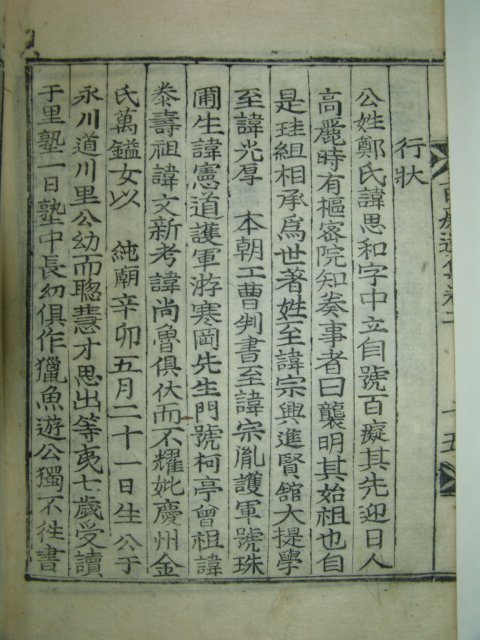 行狀
公姓鄭氏諱思和字中立自號百癡其先迎日人
高麗時有樞密院知奏事者曰襲明其始祖也自
是珪組相承爲世著姓至諱宗興進賢舘大提學
至諱光厚 本朝工曹判書至諱宗胤護軍號珠
圃生諱憲道護軍游寒岡先生門號柯亭曾祖諱
泰壽祖諱文新考諱尚魯俱伏而不耀妣慶州金
氏萬鎰女以 純朝辛卯五月二十一日生公于
永川道川里公幼而聰慧才思出等夷七歲受讀
于里塾一日塾中長幼俱作獵魚遊公獨不徃書